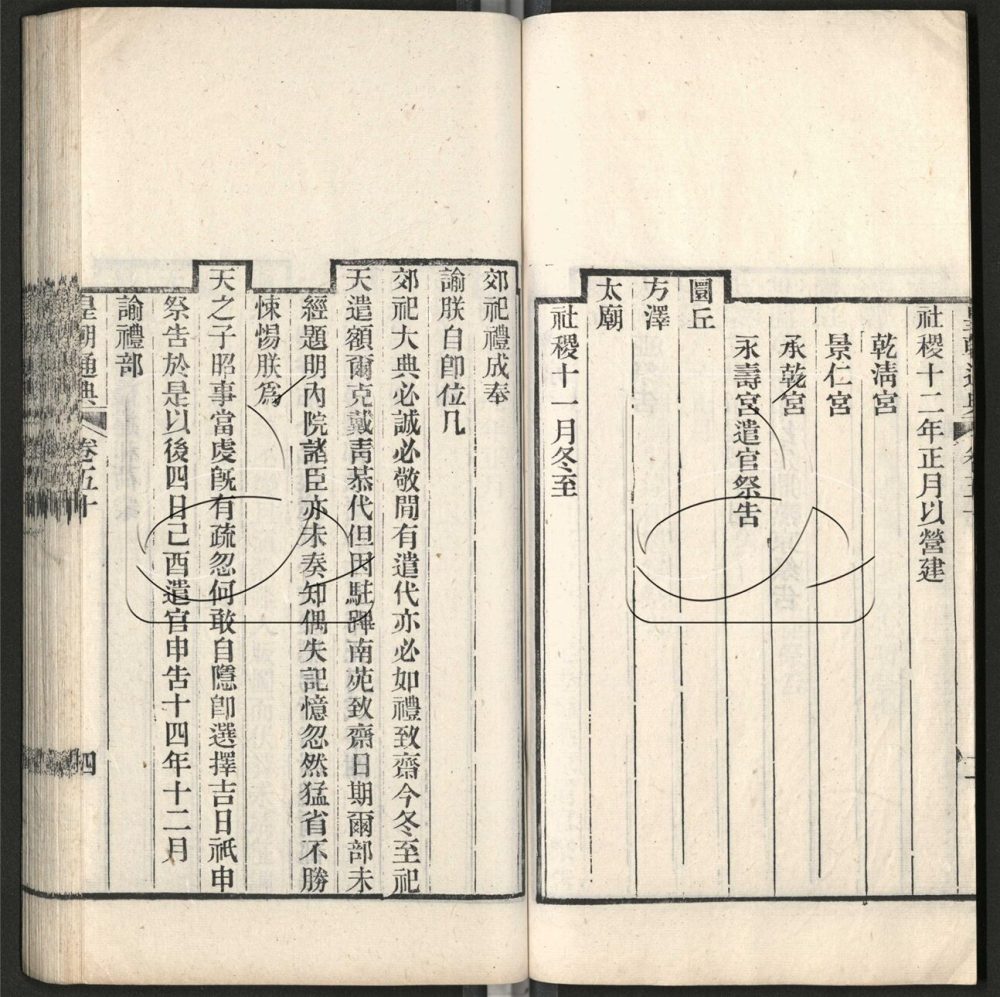 社稷十二年正月以營建
乾清宮
景仁宮
承乾宮
永壽宮遣官祭告
圜丘
方澤
太廟
社稷十一月冬至
郊祀禮成奉
諭朕自卽位凡
郊祀大典必誠必敬閒有遣代亦必如禮致齋今冬至祀
天遣額爾克戴靑恭代但因駐蹕南苑致齋日期爾部未
經題明內院諸臣亦未奏知偶失記憶忽然猛省不勝
悚惕朕爲
天之子昭事當虔旣有疏忽何敢自隱卽選擇吉日祇申
祭告於是以後四日己酉遣官申告十四年十二月
諭禮部
皇朝通典 卷五十 四